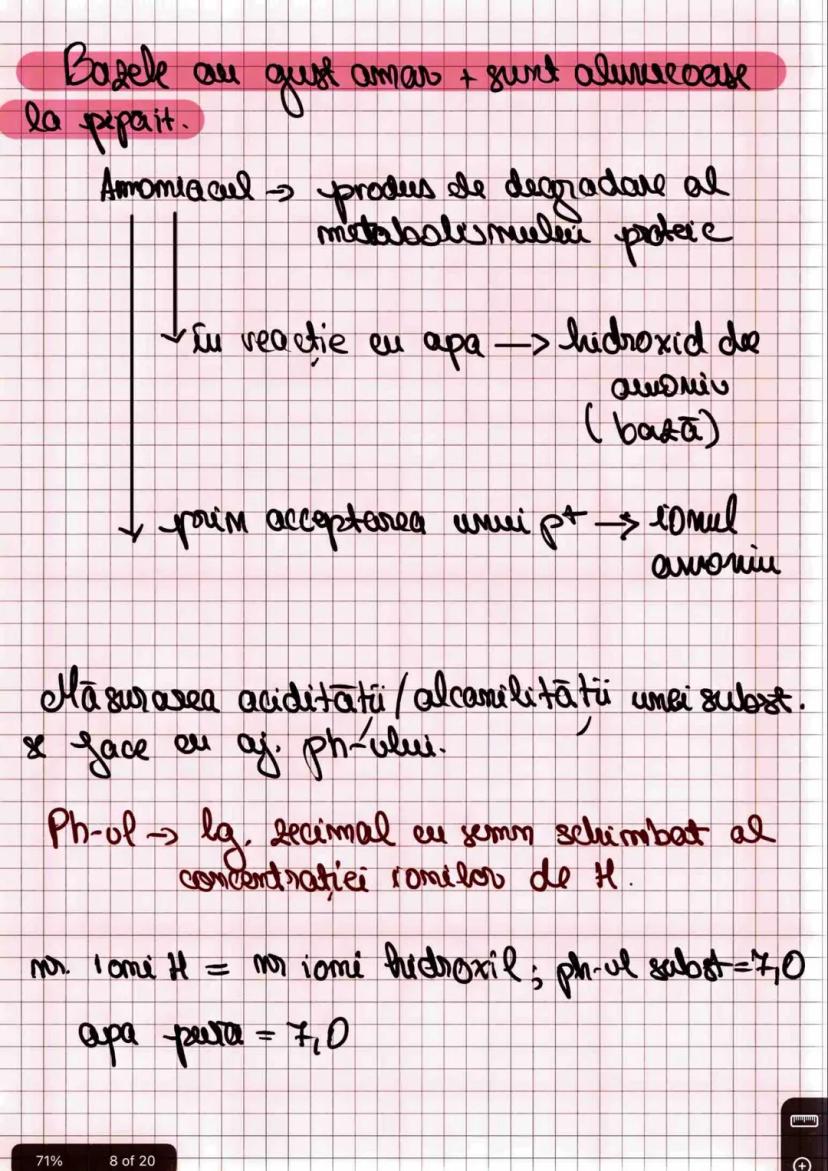 Bazele au gust amar + sunt alunecoase
la pipait.
Amoniacul → produs de degradare al
metabolismului proteic
în reacție cu apa → hidroxid de
amoniu
(bază)
prin acceptarea unui p+ → ionul
amoniu
Măsurarea acidității/alcanilității unei subst.
se face cu aj. ph-ului.
Ph-ul → lg. zecimal cu semn schimbat al
concentrației ionilor de H.
nr. ioni H = nr ioni hidroxil; ph-ul subst=7,0
apa pura = 7,0
71% 8 of 20